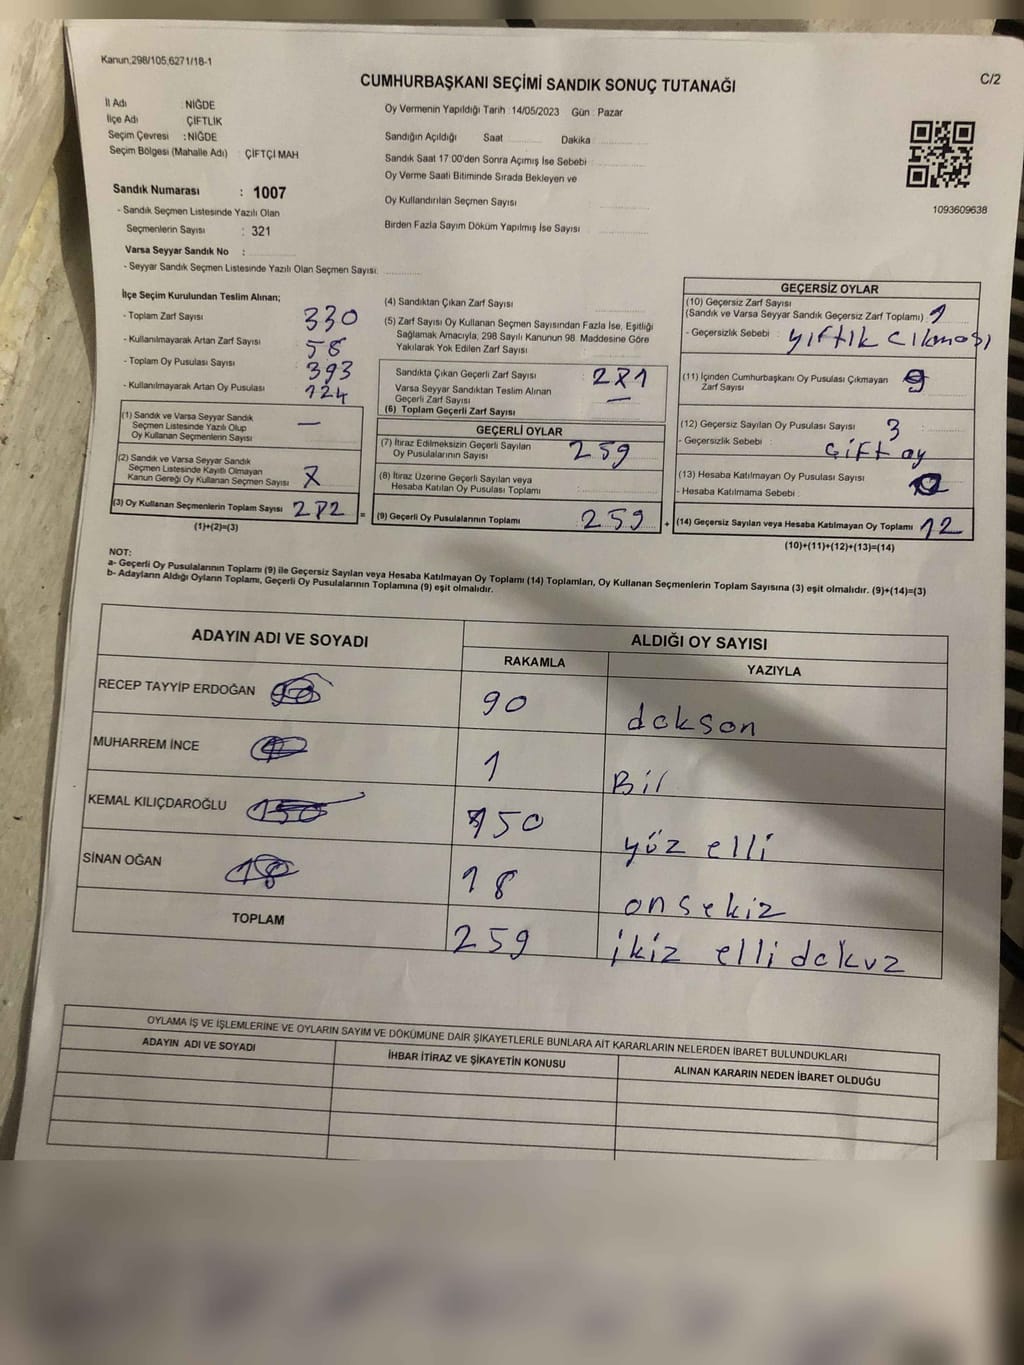 Kanun,298/105,6271/18-1
C/2
CUMHURBAŞKANI SEÇİMİ SANDIK SONUÇ TUTANAĞI
İl Adı : NİĞDE
İlçe Adı : ÇİFTLİK
Seçim Çevresi : NİĞDE
Seçim Bölgesi (Mahalle Adı) : ÇİFTÇİ MAH
Sandık Numarası : 1007
- Sandık Seçmen Listesinde Yazılı Olan
Seçmenlerin Sayısı : 321
Varsa Seyyar Sandık No :
- Seyyar Sandık Seçmen Listesinde Yazılı Olan Seçmen Sayısı:
Oy Vermenin Yapıldığı Tarih : 14/05/2023 Gün : Pazar
Sandığın Açıldığı Saat Dakika :
Sandık Saat 17:00'den Sonra Açımış İse Sebebi :
Oy Verme Saati Bitiminde Sırada Bekleyen ve
Oy Kullandırılan Seçmen Sayısı :
Birden Fazla Sayım Döküm Yapılmış İse Sayısı :
1093609638
İlçe Seçim Kurulundan Teslim Alınan;
- Toplam Zarf Sayısı : 330
- Kullanılmayarak Artan Zarf Sayısı : 58
- Toplam Oy Pusulası Sayısı : 393
- Kullanılmayarak Artan Oy Pusulası : 124
(1) Sandık ve Varsa Seyyar Sandık
Seçmen Listesinde Yazılı Olup
Oy Kullanan Seçmenlerin Sayısı —
(2) Sandık ve Varsa Seyyar Sandık
Seçmen Listesinde Kayıtlı Olmayan
Kanun Gereği Oy Kullanan Seçmen Sayısı
(3) Oy Kullanan Seçmenlerin Toplam Sayısı 272
(1)+(2)=(3)
(4) Sandıktan Çıkan Zarf Sayısı :
(5) Zarf Sayısı Oy Kullanan Seçmen Sayısından Fazla İse, Eşitliği
Sağlamak Amacıyla, 298 Sayılı Kanunun 98. Maddesine Göre
Yakılarak Yok Edilen Zarf Sayısı :
Sandıkta Çıkan Geçerli Zarf Sayısı : 271
Varsa Seyyar Sandıktan Teslim Alınan
Geçerli Zarf Sayısı : —
(6) Toplam Geçerli Zarf Sayısı
GEÇERLİ OYLAR
(7) İtiraz Edilmeksizin Geçerli Sayılan
Oy Pusulalarının Sayısı : 259
(8) İtiraz Üzerine Geçerli Sayılan veya
Hesaba Katılan Oy Pusulası Toplamı :
(9) Geçerli Oy Pusulalarının Toplamı : 259
GEÇERSİZ OYLAR
(10) Geçersiz Zarf Sayısı
(Sandık ve Varsa Seyyar Sandık Geçersiz Zarf Toplamı) : 1
- Geçersizlik Sebebi : yıftık cıkması
(11) İçinden Cumhurbaşkanı Oy Pusulası Çıkmayan
Zarf Sayısı :
(12) Geçersiz Sayılan Oy Pusulası Sayısı : 3
- Geçersizlik Sebebi : çift oy
(13) Hesaba Katılmayan Oy Pusulası Sayısı :
- Hesaba Katılmama Sebebi :
(14) Geçersiz Sayılan veya Hesaba Katılmayan Oy Toplamı 12
(10)+(11)+(12)+(13)=(14)
NOT:
a- Geçerli Oy Pusulalarının Toplamı (9) ile Geçersiz Sayılan veya Hesaba Katılmayan Oy Toplamı (14) Toplamları, Oy Kullanan Seçmenlerin Toplam Sayısına (3) eşit olmalıdır. (9)+(14)=(3)
b- Adayların Aldığı Oyların Toplamı, Geçerli Oy Pusulalarının Toplamına (9) eşit olmalıdır.
ADAYIN ADI VE SOYADI
ALDIĞI OY SAYISI
RAKAMLA YAZIYLA
RECEP TAYYİP ERDOĞAN 90 dokson
MUHARREM İNCE 1 Bir
KEMAL KILIÇDAROĞLU 150 150 yüz elli
SİNAN OĞAN 18 18 onsekiz
TOPLAM 259 ikiz elli dokuz
OYLAMA İŞ VE İŞLEMLERİNE VE OYLARIN SAYIM VE DÖKÜMÜNE DAİR ŞİKAYETLERLE BUNLARA AİT KARARLARIN NELERDEN İBARET BULUNDUKLARI
ADAYIN ADI VE SOYADI
İHBAR İTİRAZ VE ŞİKAYETİN KONUSU
ALINAN KARARIN NEDEN İBARET OLDUĞU